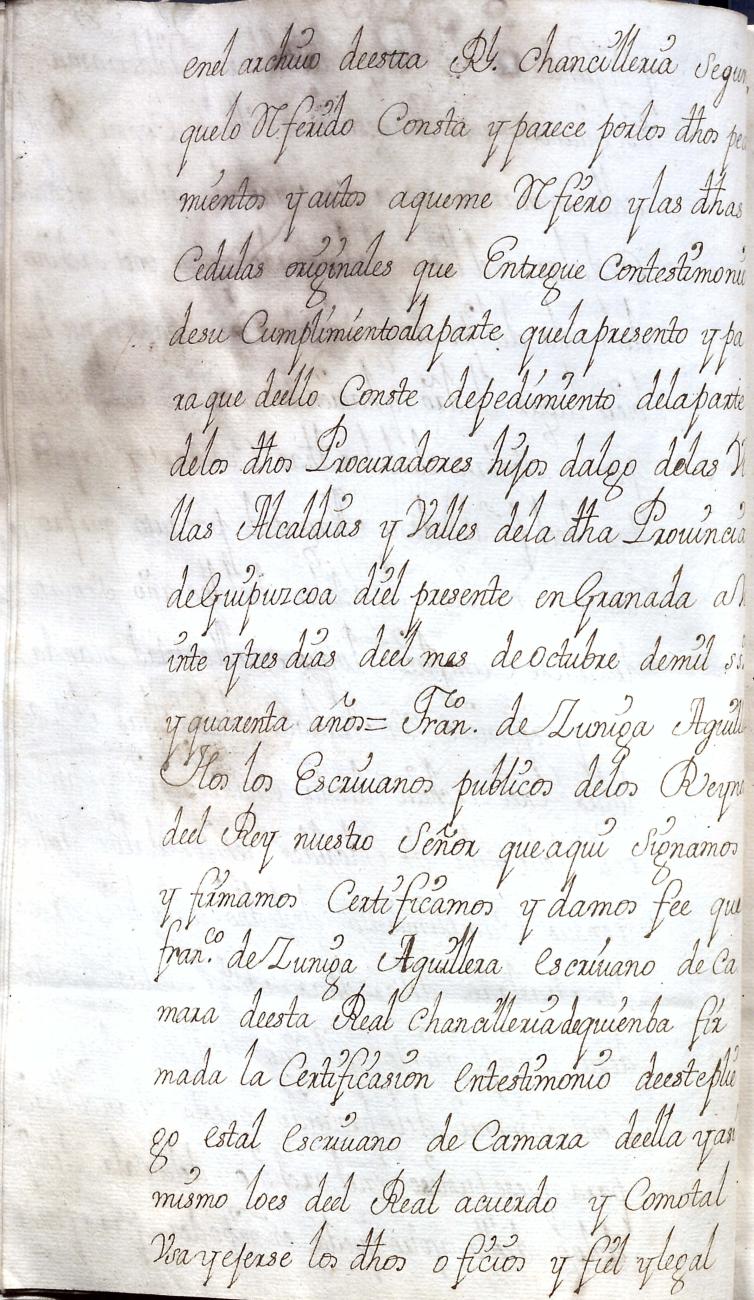 enel archiuo deesta Rl. chancilleria Segun
quelo Rferido Consta y parece porlos dhos pe
mientos y autos aqueme Rfiero y las dhas
Cedulas originales que Entregue Contestimoni
desu Cumplimiento ala parte quela presento y pa
ra que deello Conste depedimiento dela parte
delos dhos Procuradores hijos dalgo delas Vi
llas Alcaldias y Valles dela dha Prouincia
de Guipuzcoa diel presente en Granada a
inte y tres dias deel mes de octubre demil
y quarenta años= Franco. de Zuniga Aguill
Nos los Escriuanos publicos delos Reyn
deel Rey nuestro Señor que aqui Signamos
y firmamos Certificamos y damos fee que
franco. de Zuniga Aguillera escriuano de Ca
mara deesta Real chancilleria dequien ba fir
mada la Certificasion Entestimonio deeste plie
go estal escriuano de Camara deella y asi
mismo loes deel Real acuerdo y Comotal
Vsa y ejerse los dhos oficios y fiel y legal